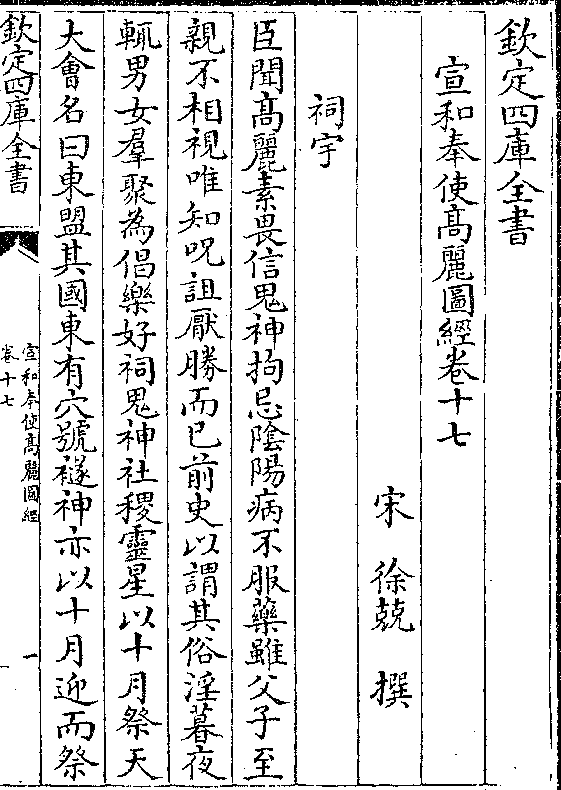 欽定四庫全書
宣和奉使髙麗圖經卷十七
宋　徐兢　撰
祠宇
臣聞髙麗素畏信鬼神拘忌隂陽病不服藥雖父子至
親不相視唯知呪詛厭勝而已前史以謂其俗淫暮夜
輒男女羣聚為倡樂好祠鬼神社稷靈星以十月祭天
大會名曰東盟其國東有穴號襚神亦以十月迎而祭
欽定四庫全書
宣和奉使髙麗圖經
卷十七
一